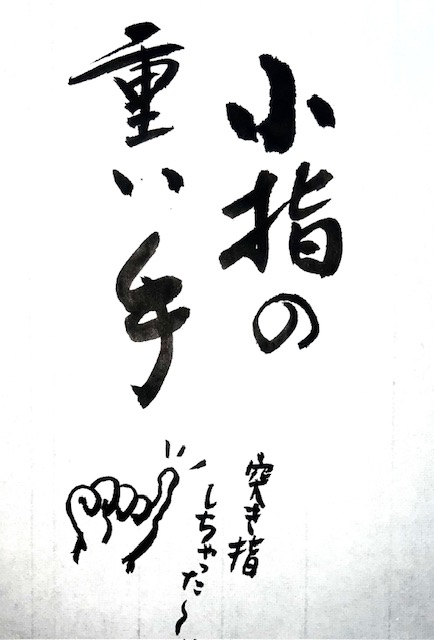 小指の
重い手
突き指
しちゃった〜